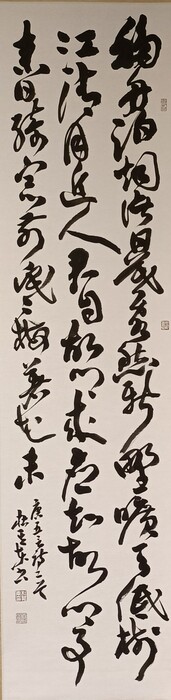 移舟泊烟渚日暮客愁新野曠天低樹
江清月近人君自故鄉来應知故鄉事
来日綺窗前寒梅著花未
庚午 詩二首